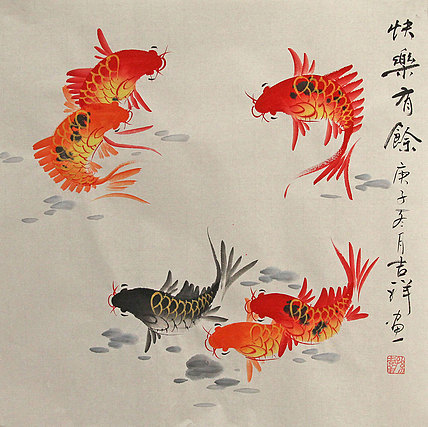 快樂有餘
庚子冬月吉祥畫